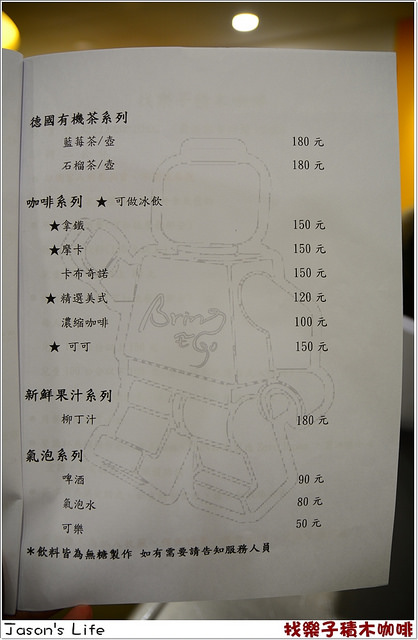 德國有機茶系列
藍莓茶/壺 180 元
石榴茶/壺 180 元
咖啡系列 ★ 可做冰飲
★拿鐵 150 元
★摩卡 150 元
卡布奇諾 150 元
★精選美式 120 元
濃縮咖啡 100 元
★ 可可 150 元
Bring & Go
新鮮果汁系列
柳丁汁 180 元
氣泡系列
啤酒 90 元
氣泡水 80 元
可樂 50 元
*飲料皆為無糖製作 如有需要請告知服務人員
Jason's Life 找樂子積木咖啡